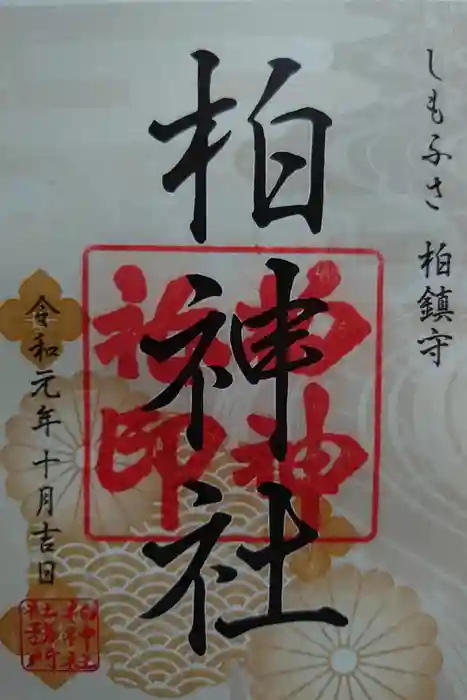 しもふさ 柏鎮守
柏神社
令和元年十月吉日
柏神社
社務所